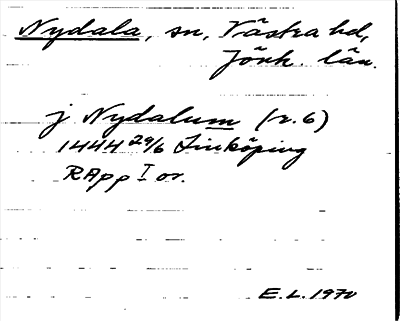 Nydala, sn, Västra hd,
Jönk. län.
j Nydalum (r. 6)
1444 29/6 Linköping
RApp I or.
E.L. 1970